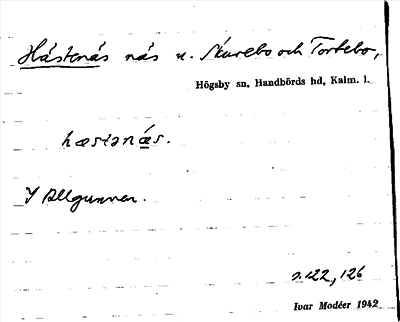 Hästenäs näs u. Skurebo och Tortebo,
Högsby sn, Handbörds hd, Kalm. l.
hæstənæ̀s.
I Allgunnen.
s. 122, 126
Ivar Modéer 1942